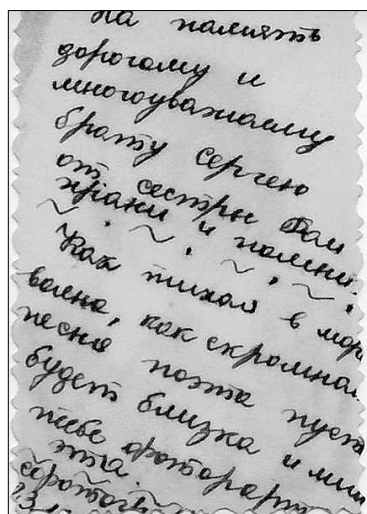 На память
дорогому и
многоуважаемому
брату Сергею
от сестры Вали
храни и помни.
Как тихая в море
волна, как скромная
песня поэта пусть
будет близка и мила
тебе фотография
эта.